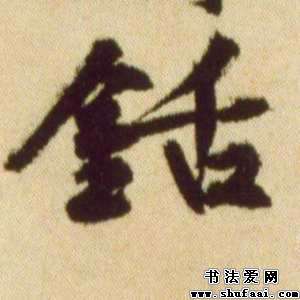 銛
书法爱网
www.shufaai.com